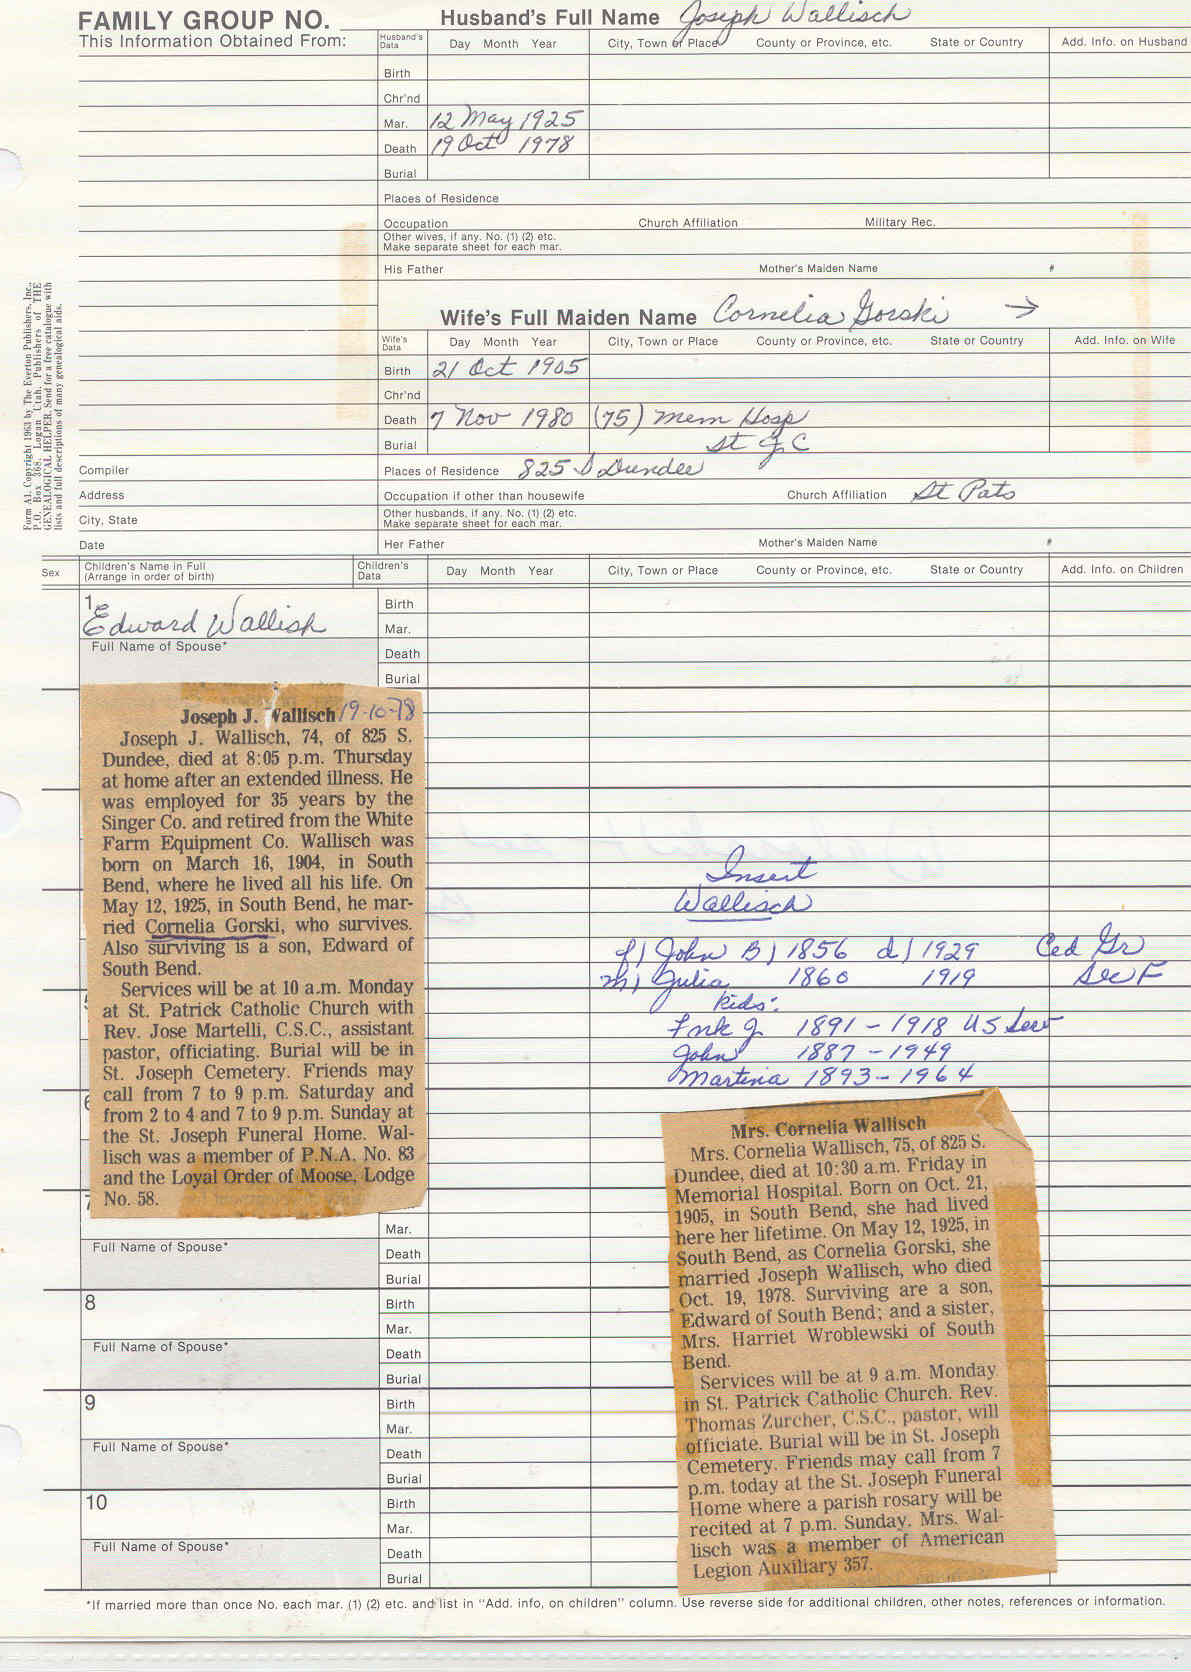 FAMILY GROUP NO.
Husband's Full Name Joseph Wallisch
This Information Obtained From:
Husband's Data Day Month Year City, Town or Place County or Province, etc. State or Country Add. Info. on Husband
Birth
Chr'nd
Mar. 12 May 1925
Death 19 Oct 1978
Burial
Places of Residence
Occupation Church Affiliation Military Rec.
Other wives, if any. No. (1) (2) etc.
Make separate sheet for each mar.
His Father Mother's Maiden Name #
Wife's Full Maiden Name Cornelia Gorski →
Wife's Data Day Month Year City, Town or Place County or Province, etc. State or Country Add. Info. on Wife
Birth 21 Oct 1905
Chr'nd
Death 7 Nov 1980 (75) Mem Hosp
Burial St J C
Compiler Places of Residence 825 S Dundee
Address Occupation if other than housewife Church Affiliation St Pats
City, State Other husbands, if any. No. (1) (2) etc.
Make separate sheet for each mar.
Date Her Father Mother's Maiden Name #
Form A1. Copyright 1963 by The Everton Publishers, Inc.,
P.O. Box 368, Logan Utah. Publishers of THE
GENEALOGICAL HELPER. Send for a free catalogue with
lists and full descriptions of many genealogical aids.
Sex Children's Name in Full
(Arrange in order of birth) Children's Data Day Month Year City, Town or Place County or Province, etc. State or Country Add. Info. on Children
1 Birth
Edward Wallish Mar.
Full Name of Spouse* Death
Burial
Joseph J. Wallisch 19-10-78
Joseph J. Wallisch, 74, of 825 S.
Dundee, died at 8:05 p.m. Thursday
at home after an extended illness. He
was employed for 35 years by the
Singer Co. and retired from the White
Farm Equipment Co. Wallisch was
born on March 16, 1904, in South
Bend, where he lived all his life. On
May 12, 1925, in South Bend, he mar-
ried Cornelia Gorski, who survives.
Also surviving is a son, Edward of
South Bend.
Services will be at 10 a.m. Monday
at St. Patrick Catholic Church with
Rev. Jose Martelli, C.S.C., assistant
pastor, officiating. Burial will be in
St. Joseph Cemetery. Friends may
call from 7 to 9 p.m. Saturday and
from 2 to 4 and 7 to 9 p.m. Sunday at
the St. Joseph Funeral Home. Wal-
lisch was a member of P.N.A. No. 83
and the Loyal Order of Moose, Lodge
No. 58.
Insert
Wallisch
f) John B) 1856 d) 1929 Ced Gr
m) Julia 1860 1919 Sec F
Kids:
Frnk J 1891 - 1918 US Serv
John 1887 - 1949
Martina 1893 - 1964
Mrs. Cornelia Wallisch
Mrs. Cornelia Wallisch, 75, of 825 S.
Dundee, died at 10:30 a.m. Friday in
Memorial Hospital. Born on Oct. 21,
1905, in South Bend, she had lived
here her lifetime. On May 12, 1925, in
South Bend, as Cornelia Gorski, she
married Joseph Wallisch, who died
Oct. 19, 1978. Surviving are a son,
Edward of South Bend; and a sister,
Mrs. Harriet Wroblewski of South
Bend.
Services will be at 9 a.m. Monday
in St. Patrick Catholic Church. Rev.
Thomas Zurcher, C.S.C., pastor, will
officiate. Burial will be in St. Joseph
Cemetery. Friends may call from 7
p.m. today at the St. Joseph Funeral
Home where a parish rosary will be
recited at 7 p.m. Sunday. Mrs. Wal-
lisch was a member of American
Legion Auxiliary 357.
Mar.
Full Name of Spouse* Death
Burial
8 Birth
Mar.
Full Name of Spouse* Death
Burial
9 Birth
Mar.
Full Name of Spouse* Death
Burial
10 Birth
Mar.
Full Name of Spouse* Death
Burial
*If married more than once No. each mar. (1) (2) etc. and list in "Add. info, on children" column. Use reverse side for additional children, other notes, references or information.